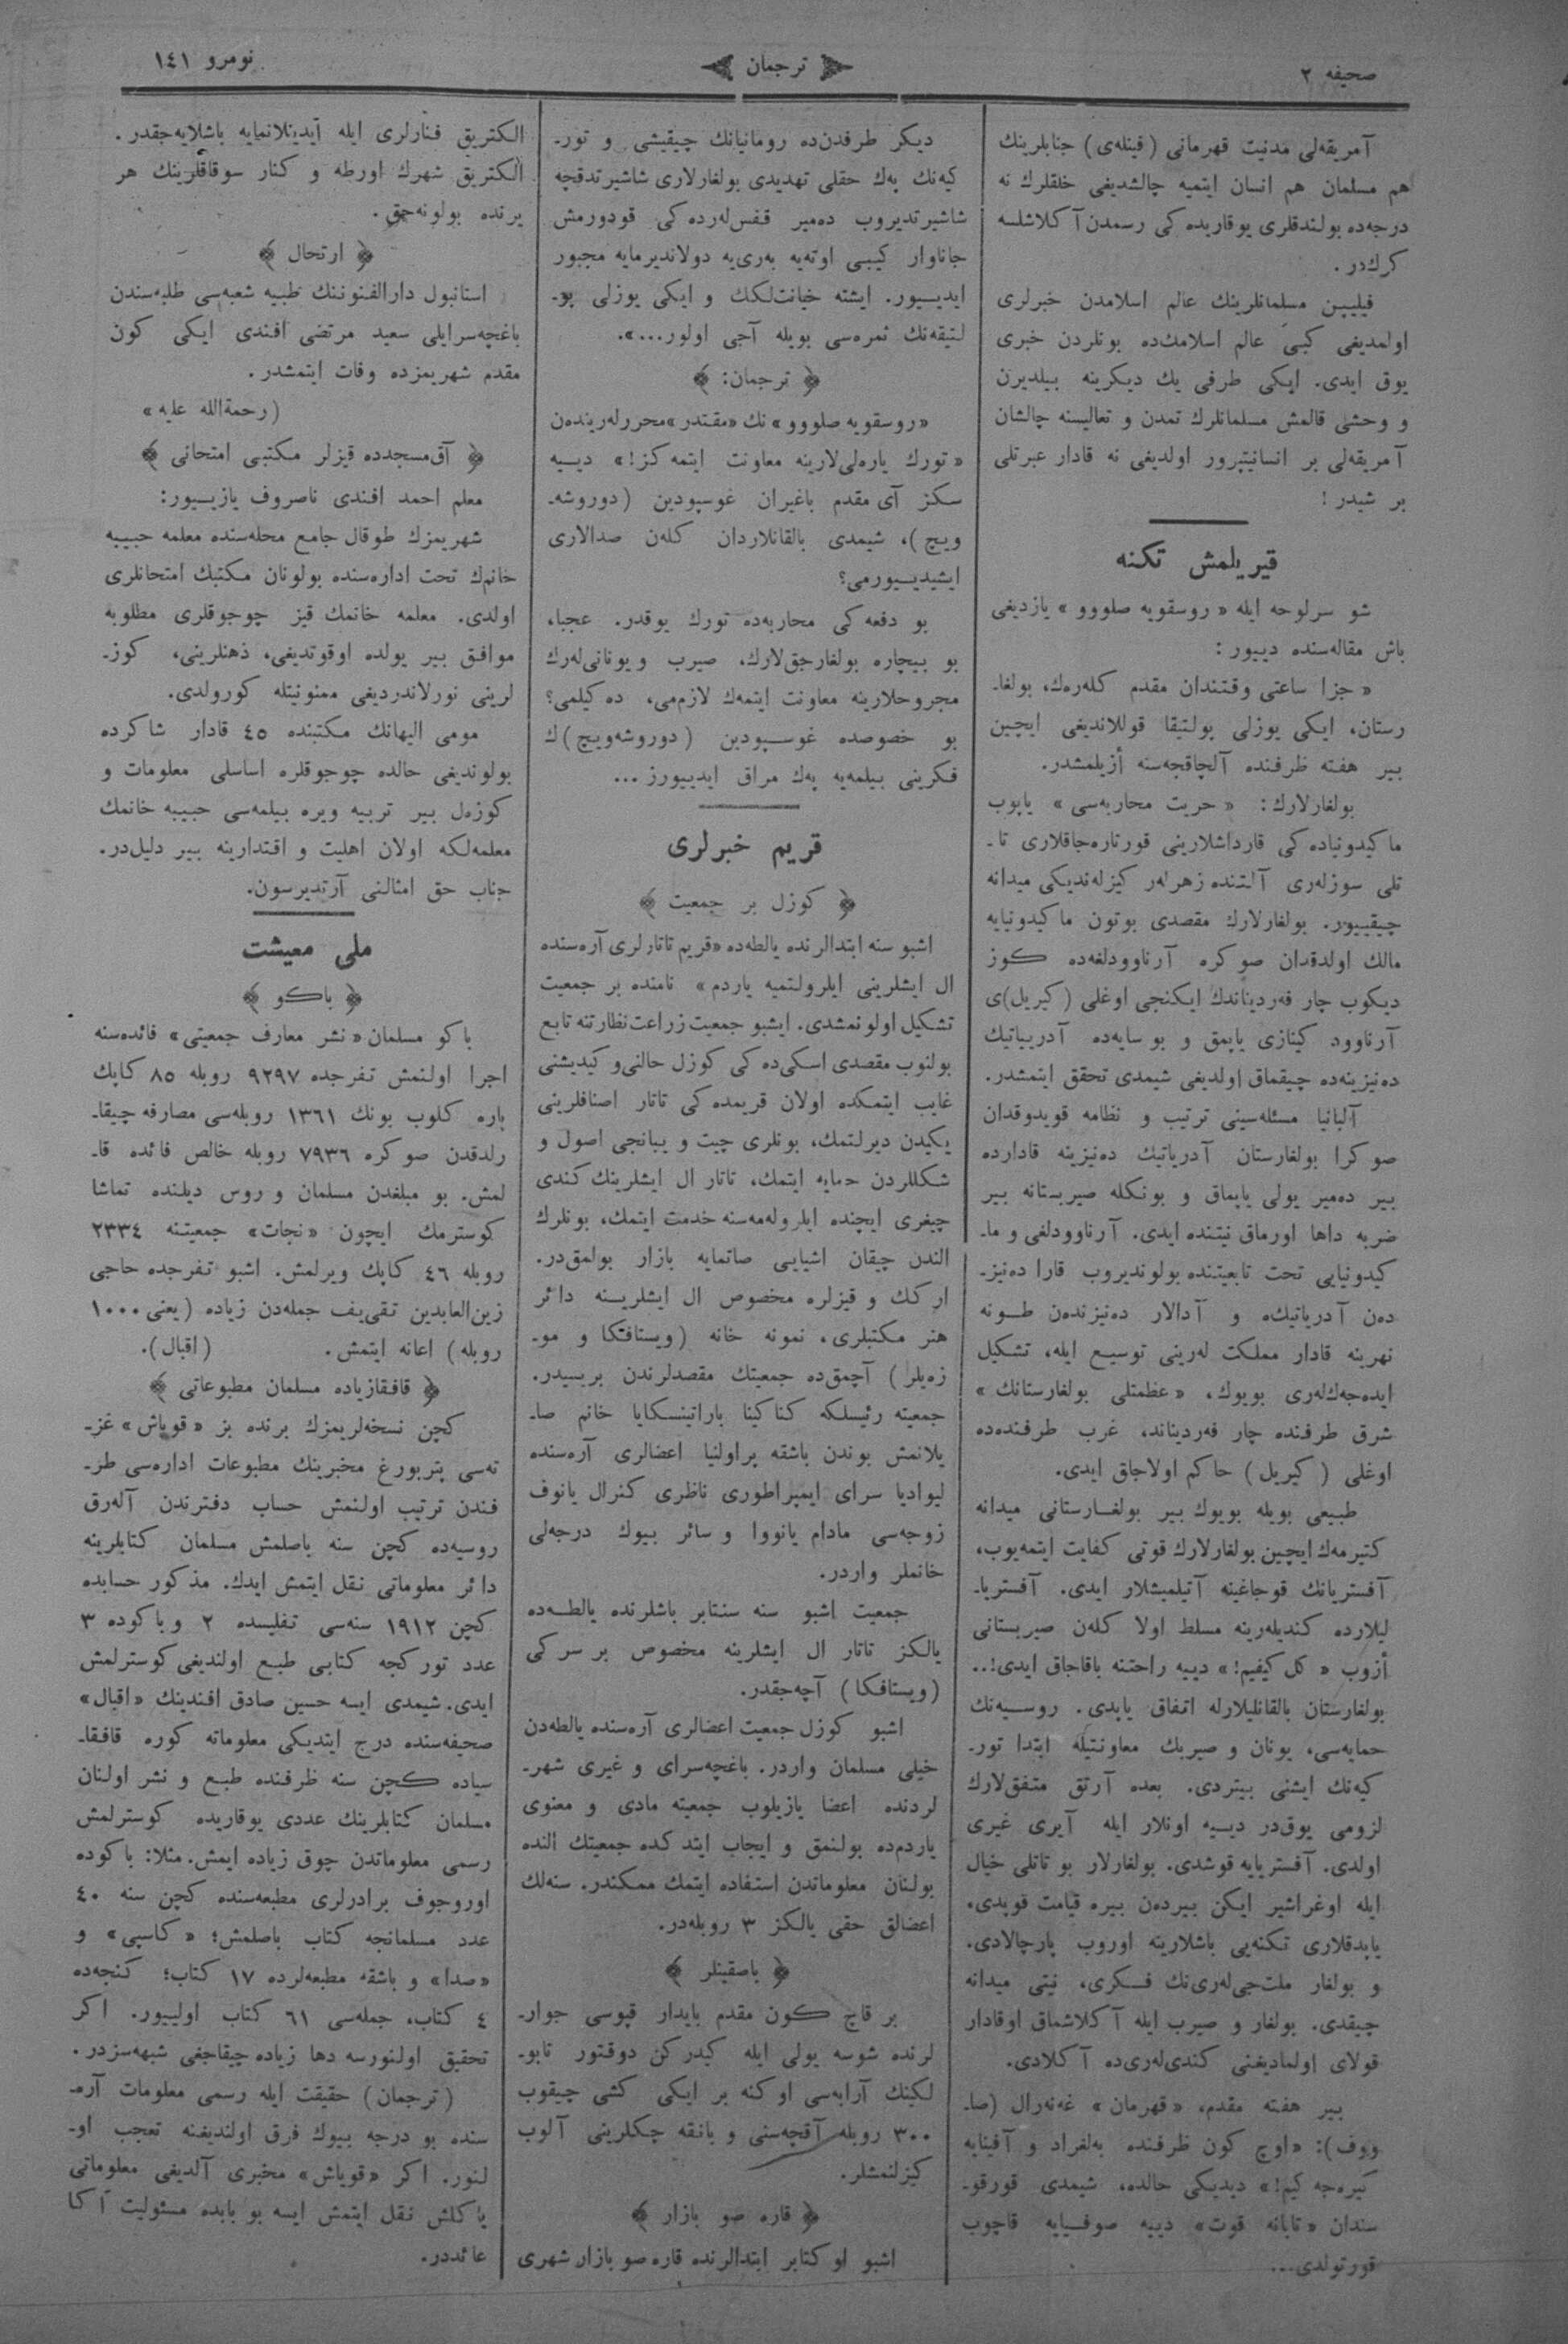 صحیفه ٢
ترجمان
نومرو ١٤١
آمریقه‌لی مدنیت قهرمانی (فینله‌ی) جنابلرینك
هم مسلمان هم انسان ایتمیه چالشدیغی خلقلرك نه
درجه‌ده بولندقلری یوقاریده کی رسمدن آ کلاشلسه
کرك‌در .
فیلیپین مسلمانلرینك عالم اسلامدن خبرلری
اولمدیغی کبی عالم اسلامك‌ده بونلردن خبری
یوق ایدی. ایکی طرفی یك دیکرینه بیلدیرن
و وحشی قالمش مسلمانلرك تمدن و تعالیسنه چالشان
آمریقه‌لی بر انسانیتپرور اولدیغی نه قادار عبرتلی
بر شیدر !
قیریلمش تکنه
شو سرلوحه ایله « روسقویه صلووو » یازدیغی
باش مقاله‌سنده دییور :
« جزا ساعتی وقتندان مقدم کله‌رەك، بولغا-
رستان، ایکی یوزلی پولتیقا قوللاندیغی ایچین
بیر هفته ظرفنده آلچاقجه‌سنه أزیلمشدر.
بولغارلارك: « حریت محاربه‌سی » یاپوب
ماکیدونیاده کی قارداشلارینی قورتاره‌جاقلاری تا-
تلی سوزله‌ری آلتنده زهرلەر کیزله‌ندیکی میدانه
چیقییور. بولغارلارك مقصدی بوتون ماکیدونیایه
مالك اولدقدان صوکره آرناوودلغه‌ده کوز
دیکوب چار فەردیناندك ایکنجی اوغلی (کیریل)ی
آرناوود کینازی یاپمق و بو سایه‌ده آدرییاتیك
دەنیزینه‌ده چیقماق اولدیغی شیمدی تحقق ایتمشدر.
آلبانیا مسئله‌سینی ترتیب و نظامه قویدوقدان
صوکرا بولغارستان آدریاتیك دەنیزینه قادارده
بیر دەمیر یولی یاپماق و بونکله صیربستانه بیر
ضربه داها اورماق نیتنده ایدی. آرناوودلغی و ما-
کیدونیایی تحت تابعیتنده بولوندیروب قارا دەنیز-
دەن آدریاتیكه و آدالار دەنیزندەن طونه
نهرینه قادار مملکت لەرینی توسیع ایله، تشکیل
ایدەجەك‌لەری بویوك، « عظمتلی بولغارستانك »
شرق طرفنده چار فەردیناند، غرب طرفندەده
اوغلی ( کیریل ) حاکم اولاجاق ایدی.
طبیعی بویله بویوك بیر بولغارستانی میدانه
کتیرمەك ایچین بولغارلارك قوتی کفایت ایتمەیوب،
آفستریانك قوجاغینه آتیلمیشلار ایدی. آفستریا-
لیلارده کندیلەرینه مسلط اولا کلەن صیربستانی
أزوب « کل کیفیم!» دییه راحتنه باقاجاق ایدی!..
بولغارستان بالقانلیلارله اتفاق یاپدی. روسیه‌نك
حمایه‌سی، یونان و صیربك معاونتیله ابتدا تور-
کیه‌نك ایشنی بیتردی. بعده آرتق متفق‌لارك
لزومی یوق‌در دییه اونلار ایله آیری غیری
اولدی. آفستریایه قوشدی. بولغارلار بو تاتلی خیال
ایله اوغراشیر ایکن بیردەن بیره قیامت قوپدی.
یاپدقلاری تکنه‌یی باشلارینه اوروب پارچالادی.
و بولغار ملت‌جی‌لەری‌نك فکری، نیتی میدانه
چیقدی. بولغار و صیرب ایله آ کلاشماق اوقادار
قولای اولمادیغنی کندی‌لەری‌ده آ کلادی.
بیر هفته مقدم، « قهرمان » غەنەرال (صا-
ووف): «اوچ کون ظرفنده بەلغراد و آفینایه
کیرەجه کیم!» دیدیکی حالده، شیمدی قورقو-
سندان « تابانه قوت» دییه صوفیایه قاچوب
قورتولدی...
دیکر طرفدن‌ده رومانیانك چیقیشی و تور-
کیه‌نك پەك حقلی تهدیدی بولغارلاری شاشیرتدقچه
شاشیرتدیروب دەمیر قفس‌لەرده کی قودورمش
جاناوار کیبی اوتەیه بەری‌یه دولاندیرمایه مجبور
ایدییور. ایشته خیانت‌لکك و ایکی یوزلی پو-
لتیقه‌نك ثمره‌سی بویله آجی اولور...».
﴿ ترجمان: ﴾
«روسقویه صلووو» نك «مقتدر» محررلەریندەن
« تورك یاره‌لی‌لارینه معاونت ایتمه کز!» دییه
سکز آی مقدم باغیران غوسپودین (دوروشه-
ویچ)، شیمدی بالقانلاردان کلەن صدالاری
ایشیدییورمی؟
بو دفعه کی محاربه‌ده تورك یوقدر. عجبا،
بو بیچاره بولغارجق‌لارك، صیرب و یونانی‌لەرك
مجروحلارینه معاونت ایتمەك لازم‌می، دەکیلمی؟
بو خصوصده غوسپودین (دوروشەویچ)ك
فکرینی بیلمەیه پەك مراق ایدییورز ...
قریم خبرلری
﴿ کوزل بر جمعیت ﴾
اشبو سنه ابتدالرنده یالطه‌ده «قریم تاتارلری آره‌سنده
ال ایشلرینی ایلرولتمیه یاردم» نامنده بر جمعیت
تشکیل اولونمشدی. ایشبو جمعیت زراعت نظارتنه تابع
بولنوب مقصدی اسکی‌ده کی کوزل حالنی و کیدیشنی
غایب ایتمکده اولان قریمده کی تاتار اصنافلرینی
یکیدن دیرلتمك، بونلری چیت و یبانجی اصول و
شکللردن حمایه ایتمك، تاتار ال ایشلرینك کندی
چیغری ایچنده ایلرولەمەسنه خدمت ایتمك، بونلرك
الندن چیقان اشیایی صاتمایه بازار بولمق‌در.
ارکك و قیزلره مخصوص ال ایشلرینه دائر
هنر مکتبلری، نمونه خانه (ویستافتکا و مو-
زەیلر) آچمق‌ده جمعیتك مقصدلرندن بریسیدر.
جمعیته رئیسلکه کناکینا باراتینسکایا خانم صا-
یلانمش بوندن باشقه پراولنیا اعضالری آره‌سنده
لیوادیا سرای ایمپراطوری ناظری کنرال یانوف
زوجه‌سی مادام یانووا و سائر بیوك درجه‌لی
خانملر واردر.
جمعیت اشبو سنه سنتابر باشلرنده یالطه‌ده
یالکز تاتار ال ایشلرینه مخصوص بر سرکی
(ویستافکا) آچه‌جقدر.
اشبو کوزل جمعیت اعضالری آره‌سنده یالطه‌دن
خیلی مسلمان واردر. باغچه‌سرای و غیری شهر-
لردنده اعضا یازیلوب جمعیته مادی و معنوی
یاردم‌ده بولنمق و ایجاب ایتدکده جمعیتك النده
بولنان معلوماتدن استفاده ایتمك ممکندر. سنه‌لك
اعضالق حقی یالکز ٣ روبله‌در.
﴿ باصقینلر ﴾
بر قاچ کون مقدم بایدار قپوسی جوار-
لرنده شوسه یولی ایله کیدرکن دوقتور تابو-
لکینك آرابه‌سی اوکنه بر ایکی کشی چیقوب
٣٠٠ روبله آقچه‌سنی و بانقه چکلرینی آلوب
کیزلنمشلر.
﴿ قاره صو بازار ﴾
اشبو اوکتابر ابتدالرنده قاره صو بازار شهری
الکتریق فنارلری ایله آیدینلانمایه باشلایه‌جقدر .
الکتریق شهرك اورطه و کنار سوقاقلرینك هر
یرنده بولونه‌جق .
﴿ ارتحال ﴾
استانبول دارالفنوننك طبیه شعبه‌سی طلبه‌سندن
باغچه‌سرایلی سعید مرتضی افندی ایکی کون
مقدم شهریمزده وفات ایتمشدر.
(رحمةالله علیه»
﴿ آق‌مسجدده قیزلر مکتبی امتحانی ﴾
معلم احمد افندی ناصروف یازییور:
شهریمزك طوقال جامع محله‌سنده معلمه حبیبه
خانم‌ك تحت اداره‌سنده بولونان مکتبك امتحانلری
اولدی. معلمه خانمك قیز چوجوقلری مطلوبه
موافق بیر یولده اوقوتدیغی، ذهنلرینی، کوز-
لرینی نورلاندردیغی ممنونیتله کورولدی.
مومی الیهانك مکتبنده ٤٥ قادار شاکرده
بولوندیغی حالده چوجوقلره اساسلی معلومات و
کوزەل بیر تربیه ویره بیلمه‌سی حبیبه خانمك
معلمه‌لکه اولان اهلیت و اقتدارینه بیر دلیل‌در.
جناب حق امثالنی آرتدیرسون.
ملی معیشت
﴿ باکو ﴾
باکو مسلمان « نشر معارف جمعیتی » فائده‌سنه
اجرا اولنمش تفرجده ٩٢٩٧ روبله ٨٥ کاپك
پاره کلوب بونك ١٣٦١ روبله‌سی مصارفه چیقا-
رلدقدن صوکره ٧٩٣٦ روبله خالص فائده قا-
لمش. بو مبلغدن مسلمان و روس دیلنده تماشا
کوسترمك ایچون «نجات» جمعیتنه ٢٣٣٤
روبله ٤٦ کاپك ویرلمش. اشبو تفرجده حاجی
زین‌العابدین تقی‌یف جمله‌دن زیاده (یعنی ١٠٠٠
روبله) اعانه ایتمش. (اقبال).
﴿ قافقازیاده مسلمان مطبوعاتی ﴾
کچن نسخه‌لریمزك برنده بز «قویاش» غز-
ته‌سی پتربورغ مخبرینك مطبوعات اداره‌سی طر-
فندن ترتیب اولنمش حساب دفترندن آله‌رق
روسیه‌ده کچن سنه باصلمش مسلمان کتابلرینه
دائر معلوماتی نقل ایتمش ایدك. مذکور حسابده
کچن ١٩١٢ سنه‌سی تفلیسده ٢ و باکوده ٣
عدد تورکجه کتابی طبع اولندیغی کوسترلمش
ایدی. شیمدی ایسه حسین صادق افندینك «اقبال»
صحیفه‌سنده درج ایتدیکی معلوماته کوره قافقا-
سیاده کچن سنه ظرفنده طبع و نشر اولنان
مسلمان کتابلرینك عددی یوقاریده کوسترلمش
رسمی معلوماتدن چوق زیاده ایمش. مثلا: باکوده
اوروجوف برادرلری مطبعه‌سنده کچن سنه ٤٠
عدد مسلمانجه کتاب باصلمش؛ «کاسپی» و
«صدا» و باشقه مطبعه‌لرده ١٧ کتاب؛ کنجه‌ده
٤ کتاب، جمله‌سی ٦١ کتاب اولییور. اکر
تحقیق اولنورسه دها زیاده چیقاجغی شبهه‌سزدر.
(ترجمان) حقیقت ایله رسمی معلومات آره-
سنده بو درجه بیوك فرق اولندیغنه تعجب او-
لنور. اکر «قویاش» مخبری آلدیغی معلوماتی
یا کلش نقل ایتمش ایسه بو بابده مسئولیت آ کا
عائددر.